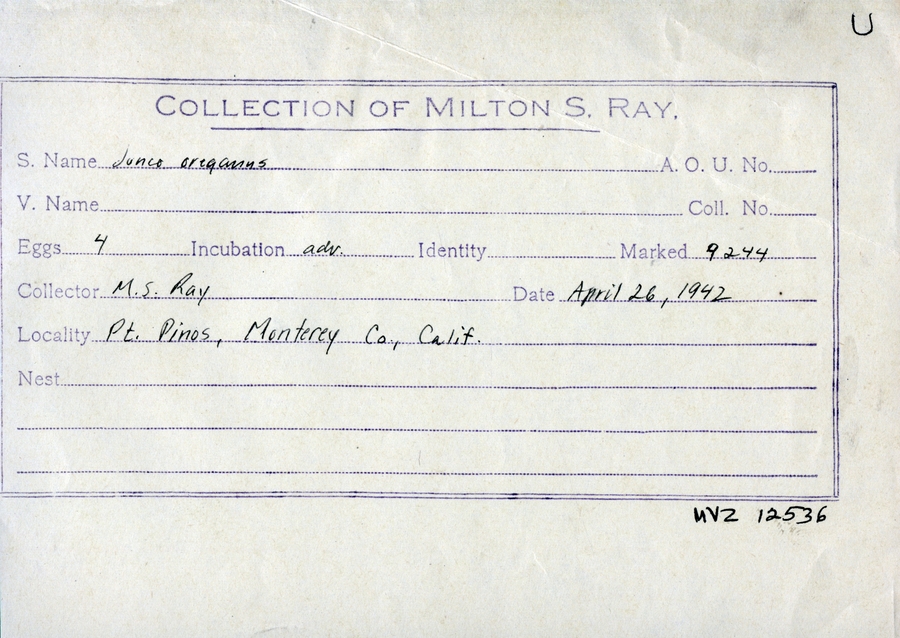 U
COLLECTION OF MILTON S. RAY.
S. Name Junco oreganus A. O. U. No.
V. Name Coll. No.
Eggs 4 Incubation adv. Identity Marked 9244
Collector M.S. Ray Date April 26, 1942
Locality Pt. Pinos, Monterey Co., Calif.
Nest
MVZ 12536